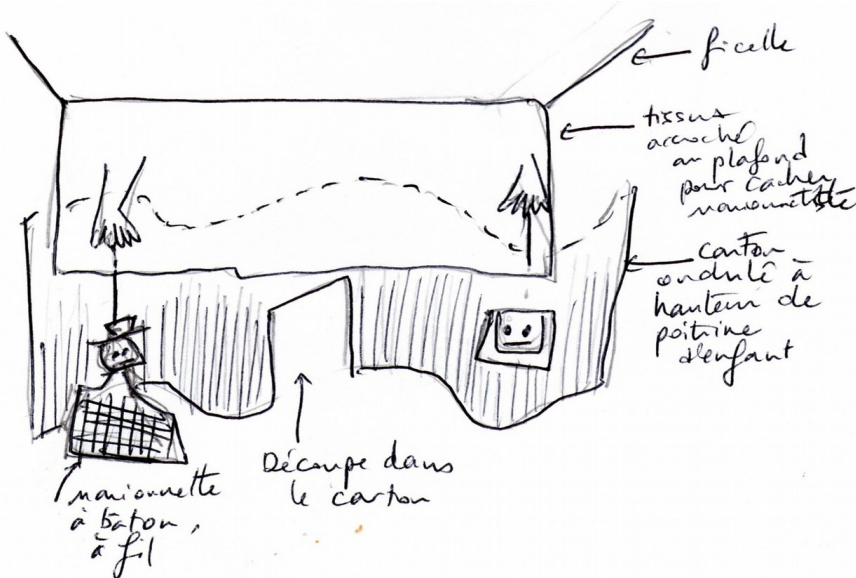 ficelle
tissus
accroché
au plafond
pour cacher
marionnettiste
carton
ondulé à
hauteur de
poitrine
d'enfant
Découpe dans
le carton
marionnette
à bâton,
à fil